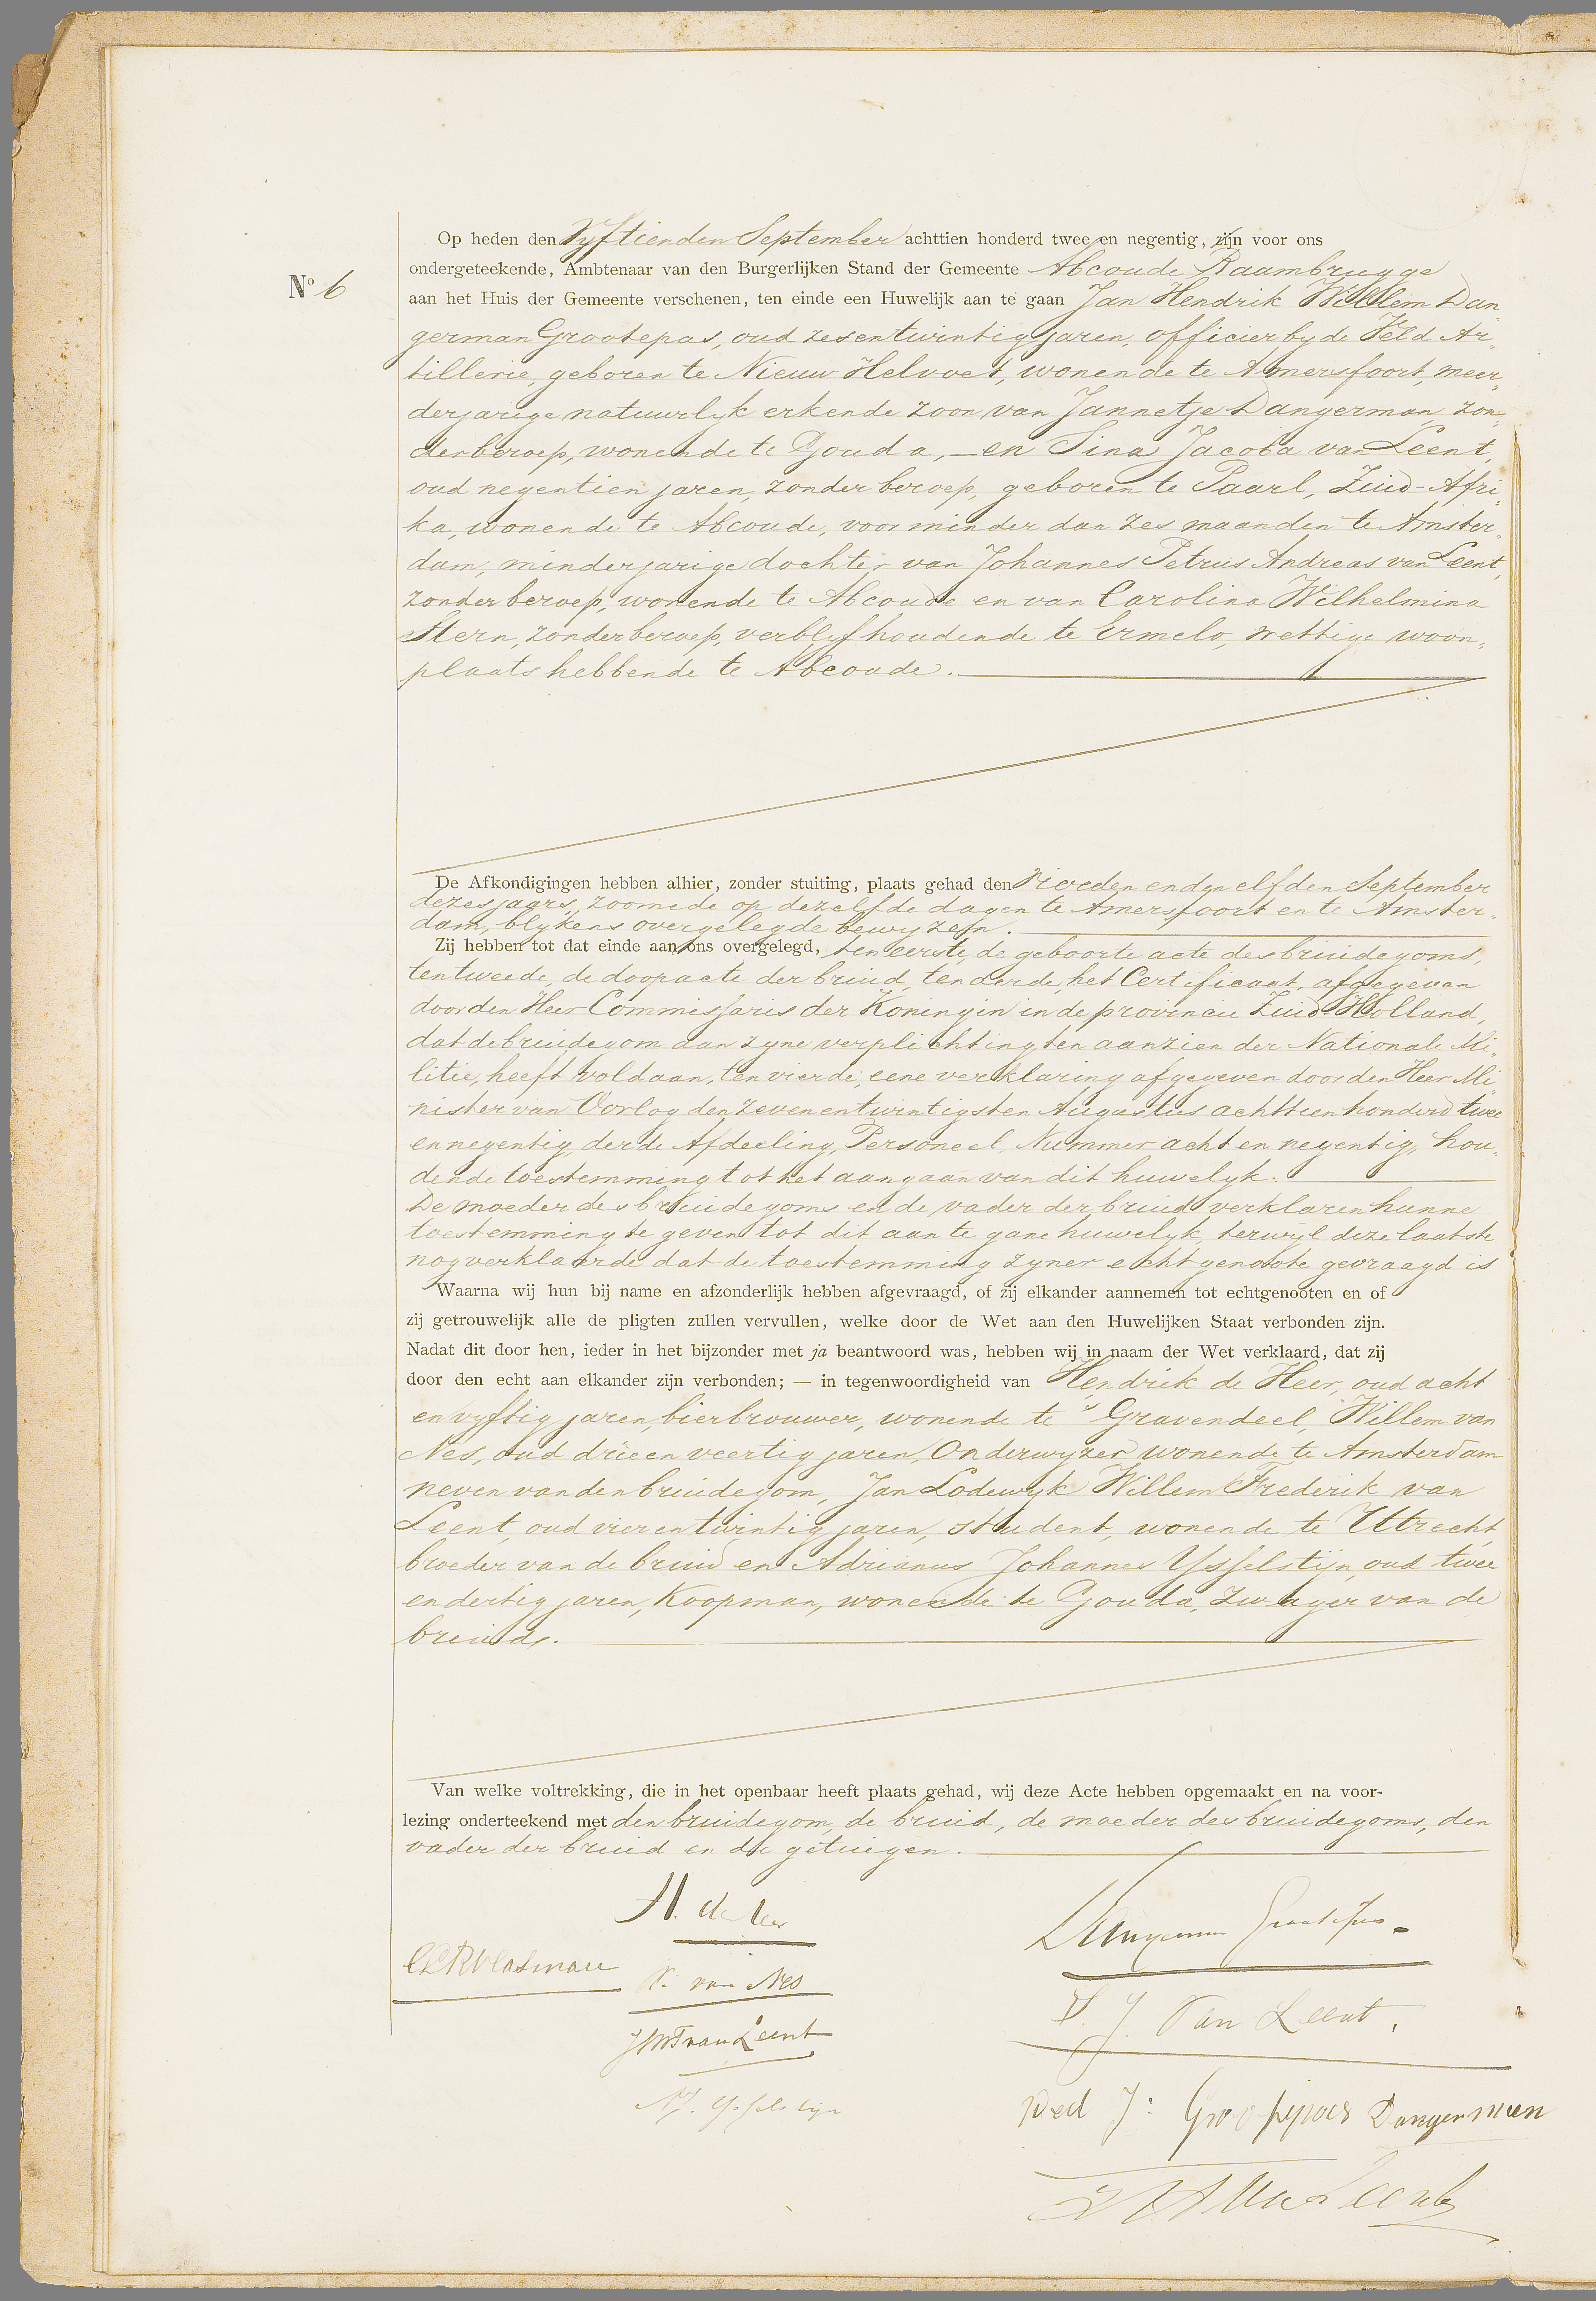 Op heden den Vyftienden September achttien honderd twee en negentig, zijn voor ons
ondergeteekende, Ambtenaar van den Burgerlijken Stand der Gemeente Abcoude Baambrugge
No 6
aan het Huis der Gemeente verschenen, ten einde een Huwelijk aan te gaan Jan Hendrik Willem Dan„
german Grootepas, oud zesentwintig jaren, officier by de Veld Ar„
tillerie, geboren te Nieuw Helvoet, wonende te Amersfoort, meer„
derjarige natuurlyk erkende zoon van Jannetje Dangerman, zon„
der beroep, wonende te Gouda, — en Sina Jacoba van Leent,
oud negentien jaren, zonder beroep, geboren te Paarl, Zuid-Afri„
ka, wonende te Abcoude, voor minder dan zes maanden te Amster„
dam, minderjarige dochter van Johannes Petrus Andreas van Leent,
zonder beroep, wonende te Abcoude en van Carolina Wilhelmina
Stern, zonder beroep, verblyfhoudende te Ermelo, wettige woon„
plaats hebbende te Abcoude.
De Afkondigingen hebben alhier, zonder stuiting, plaats gehad den vierden en den elfden September
dezes jaars, zoomede op dezelfde dagen te Amersfoort en te Amster„
dam, blykens overgelegde bewyzen.
Zij hebben tot dat einde aan ons overgelegd, ten eerste, de geboorte acte des bruidegoms,
ten tweede, de doopacte der bruid, ten derde, het Certificaat, afgegeven
door den Heer Commissaris der Koningin in de provincie Zuid Holland,
dat de bruidegom aan zyne verplichting ten aanzien der Nationale Mi„
litie, heeft voldaan, ten vierde, eene verklaring afgegeven door den Heer Mi„
nister van Oorlog den zevenentwintigsten Augustus achttien honderd twee
en negentig, derde Afdeeling, Personeel, Nummer acht en negentig, hou„
dende toestemming tot het aangaan van dit huwelyk.
De moeder des bruidegoms en de vader der bruid verklaren hunne
toestemming te geven tot dit aan te gane huwelyk, terwyl deze laatste
nog verklaarde dat de toestemming zyner echtgenoote gevraagd is
Waarna wij hun bij name en afzonderlijk hebben afgevraagd, of zij elkander aannemen tot echtgenooten en of
zij getrouwelijk alle de pligten zullen vervullen, welke door de Wet aan den Huwelijken Staat verbonden zijn.
Nadat dit door hen, ieder in het bijzonder met ja beantwoord was, hebben wij in naam der Wet verklaard, dat zij
door den echt aan elkander zijn verbonden; — in tegenwoordigheid van Hendrik de Heer, oud acht
en vyftig jaren, bierbrouwer, wonende te 's Gravendeel, Willem van
Nes, oud drieen veertig jaren, Onderwyzer wonende te Amsterdam
neven van den bruidegom, Jan Lodewyk Willem Frederik van
Leent, oud vierentwintig jaren, student, wonende te Utrecht,
broeder van de bruid en Adrianus Johannes Ysselstijn, oud twee
en dertig jaren, Koopman, wonende te Gouda, zwager van de
bruid.
Van welke voltrekking, die in het openbaar heeft plaats gehad, wij deze Acte hebben opgemaakt en na voor-
lezing onderteekend met den bruidegom, de bruid, de moeder des bruidegoms, den
vader der bruid en de getuigen.
H. de Heer
Dangerman Grootepas
W. van Nes
S. J. Van Leent.
JLWF van Leent
AJ. Ysselstijn
Wed J: Grootepas Dangerman